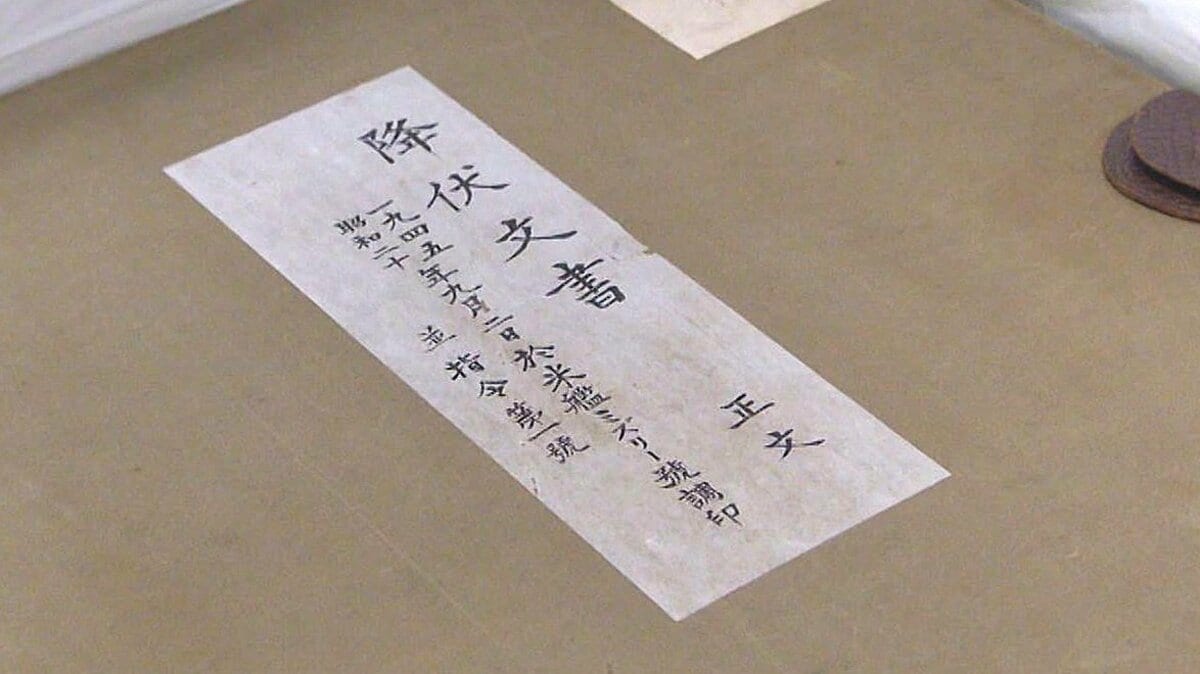 降伏文書　正文
一九四五年九月二日於米艦ミズリー號調印
昭和二十
並指令第一號